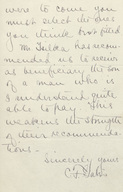 were to come you
must select the ones
you think best fitted
Mr. has recom-
mended us to receive
as beneficiary the son
of a man who is
I understand quite
able to pay. This
weakens the strength
of their recommenda-
tions.
Sincerely yours